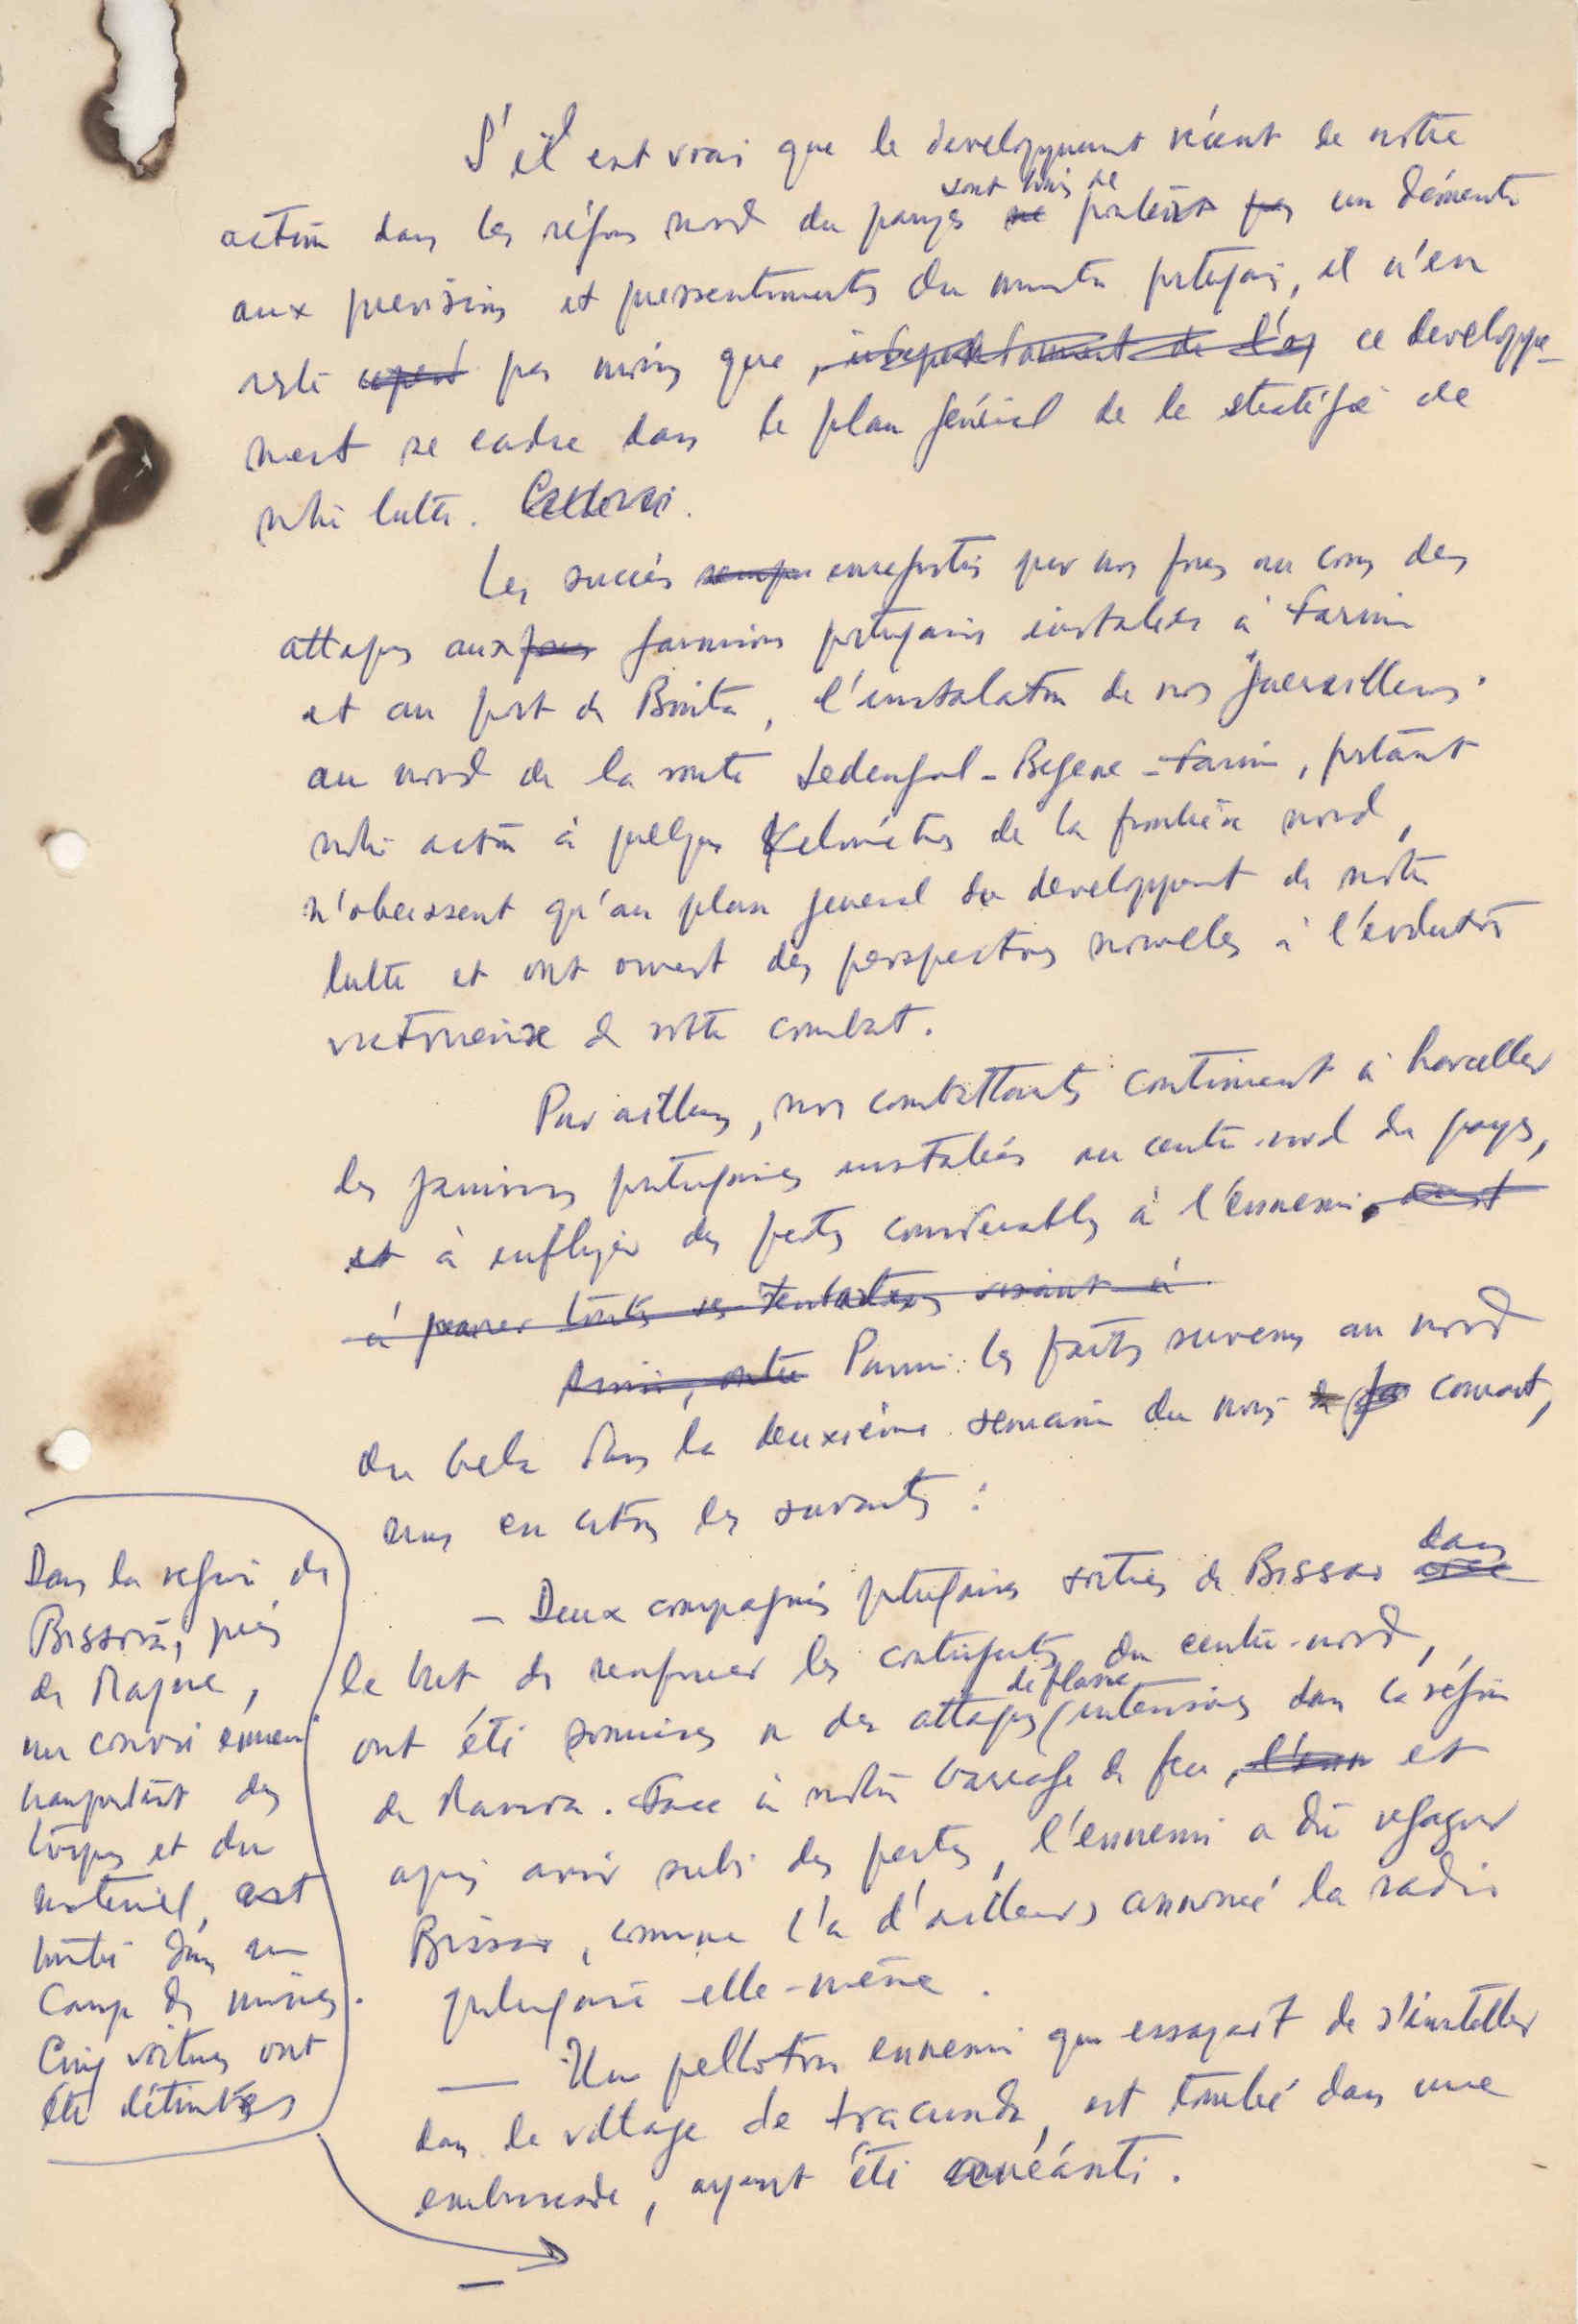 S'il est vrai que le developpement récent de notre
action dans les régions nord du pays sont loin de porter un démenti
aux previsions et pressentiments du ministre portugais, il n'en
reste pas moins que, ce developpe-
ment se cadre dans le plan général de la stratégie de
notre lutte.
Les succès enregistrés par nos forces au cours des
attaques aux garnisons portugaises installées à Farim
et au port de Binta, l'installation de nos guerrilleros
au nord de la route Sedengal-Begene-Farim, portant
notre action à quelques kilomètres de la frontière nord,
n'obeissent qu'au plan general du developpement de notre
lutte et ont ouvert des perspectives nouvelles à l'évolution
victorieuse de notre combat.
Par ailleurs, nos combattants continuent à harceller
les garnisons portugaises installées au centre-nord du pays,
et à infliger des pertes considerables à l'ennemi.
à parer toutes ses tentatives visant à
Parmi les faits survenus au nord
du Geba dans la deuxième semaine du mois courant,
nous en citons les suivants :
– Deux compagnies portugaises sorties de Bissao dans
le but de renforcer les contingents du centre-nord,
ont été soumises a des attaques de flanc intensives dans la région
de Mansoa. Face à notre barrage de feu, et
après avoir subi des pertes, l'ennemi a dû regagner
Bissao, comme l'a d'ailleurs annoncé la radio
portugaise elle-même.
— Un pelloton ennemi qui essayait de s'installer
dans le village de Fracunda, est tombé dans une
embuscade, ayant été anéanti.
Dans la region de
Bissorã, près
de Maqué,
un convoi ennemi
transportant des
troupes et du
materiel, est
tombé dans un
camp de mines.
Cinq voitures ont
été détruites
–